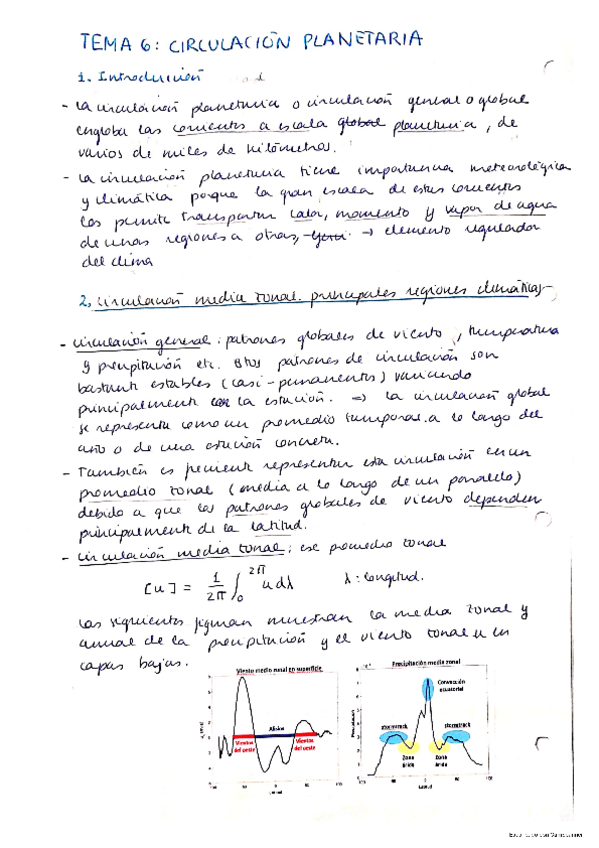 TEMA 6: CIRCULACIÓN PLANETARIA
1. Introducción
- La circulación planetaria o circulación general o global
engloba las corrientes a escala global planetaria, de
varios de miles de kilómetros.
- La circulación planetaria tiene importancia meteorológica
y climática porque la gran escala de estas corrientes
les permite transportar calor, momento y vapor de agua
de unas regiones a otras, → elemento regulador
del clima
2. Circulación media zonal. principales regiones climáticas
- circulación general: patrones globales de viento, temperatura
y precipitación etc. Estos patrones de circulación son
bastante estables (casi-permanentes) variando
principalmente con la estación. => la circulación global
se representa como un promedio temporal a lo largo del
año o de una estación concreta.
- También es frecuente representar esta circulación en un
promedio zonal (media a lo largo de un paralelo)
debido a que los patrones globales de viento dependen
principalmente de la latitud.
- circulación media zonal: ese promedio zonal
[u] = 1/2π ∫₀^2π u dλ λ: longitud.
Las siguientes figuras muestran la media zonal y
anual de la precipitación y el viento zonal u en
capas bajas.
Viento medio zonal en superficie
Alisios
Vientos del oeste
Vientos del oeste
Precipitación media zonal
Convección ecuatorial
stormtrack
stormtrack
Zona árida
Zona árida
Precipitación
Latitud